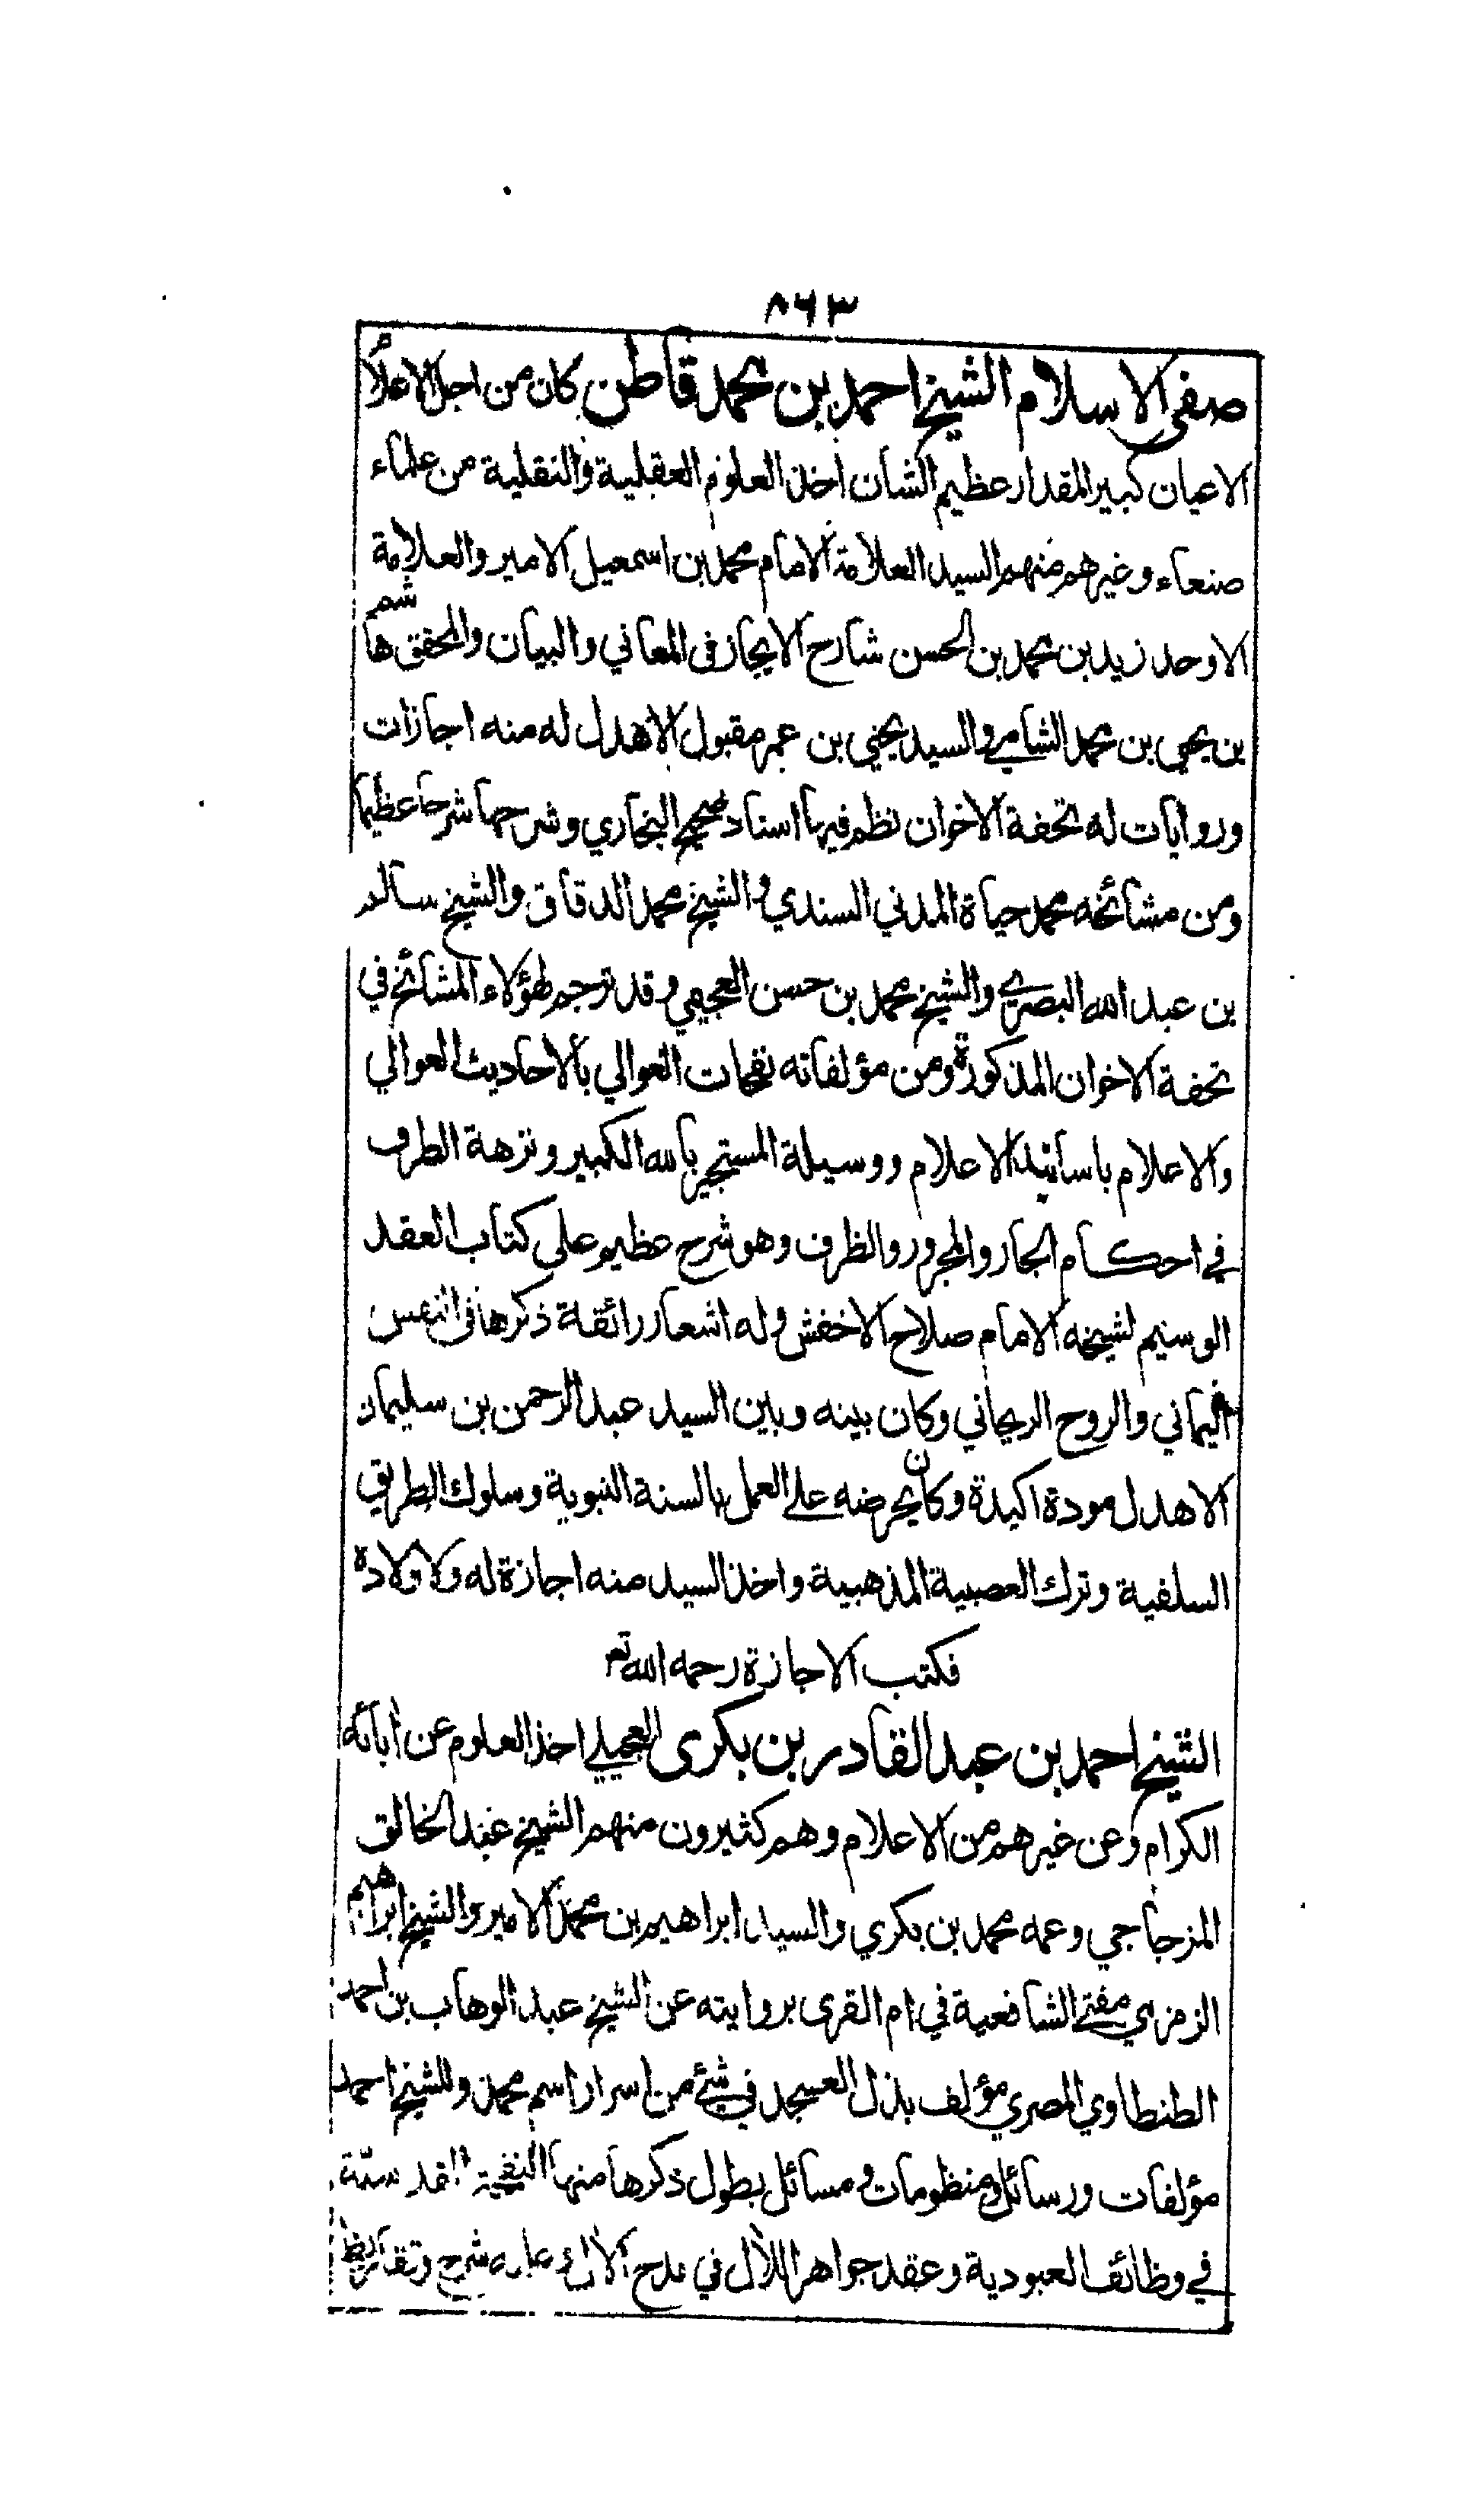 ٨٦٣
صفى الاسلام الشيخ احمد بن محمد قاطن كان من اجل الاعلام
الاعيان كبير المقدار عظيم الشان اخذ العلوم العقلية والنقلية من علماء
صنعاء وغيرهم منهم السيد العلامة الامام محمد بن اسمعيل الامير والعلامة
الاوحد زيد بن محمد بن الحسن شارح الايجاز فى المعاني والبيان والمحقق هاشم
بن يحيى بن محمد الشامي والسيد يحيى بن عمر مقبول الاهدل له منه اجازات
وروايات له تحفة الاخوان نظم فيها اسناد صحيح البخاري وشرحها شرحا عظيما
ومن مشائخه محمد حياة المدني السندي والشيخ محمد الدقاق والشيخ سالم
بن عبد الله البصري والشيخ محمد بن حسن العجيمي وقد ترجم لهؤلاء المشائخ في
تحفة الاخوان المذكورة ومن مؤلفاته نفحات الغوالي بالاحاديث العوالي
والاعلام باسانيد الاعلام ووسيلة المستجير بالله الكبير ونزهة الطرف
في احكام الجار والمجرور والظرف وهو شرح عظيم على كتاب العقد
الوسيم لشيخه الامام صلاح الاخفش وله اشعار رائقة ذكرها فى النفس
اليماني والروح الريحاني وكان بينه وبين السيد عبد الرحمن بن سليمان
الاهدل مودة اكيدة وكان يحرضه على العمل بالسنة النبوية وسلوك الطريق
السلفية وترك العصبية المذهبية واخذ السيد منه اجازة له ولاولاده
فكتب الاجازة رحمه الله تع
الشيخ احمد بن عبد القادر بن بكرى العجيلي اخذ العلوم عن ابائه
الكرام وعن غيرهم من الاعلام وهم كثيرون منهم الشيخ عبد الخالق
المزجاجي وعمه محمد بن بكري والسيد ابراهيم بن محمد الامير والشيخ ابراهيم
الزمزمي مفتي الشافعية في ام القرى بروايته عن الشيخ عبد الوهاب بن احمد
الطنطاوي المصري مؤلف بذل العسجد في شئ من اسرار اسم محمد وللشيخ احمد
مؤلفات ورسائل ومنظومات ومسائل يطول ذكرها منها النفحة القدسية
في وظائف العبودية وعقد جواهر اللآل في مدح الآل وعليه شرح وتقاريظ